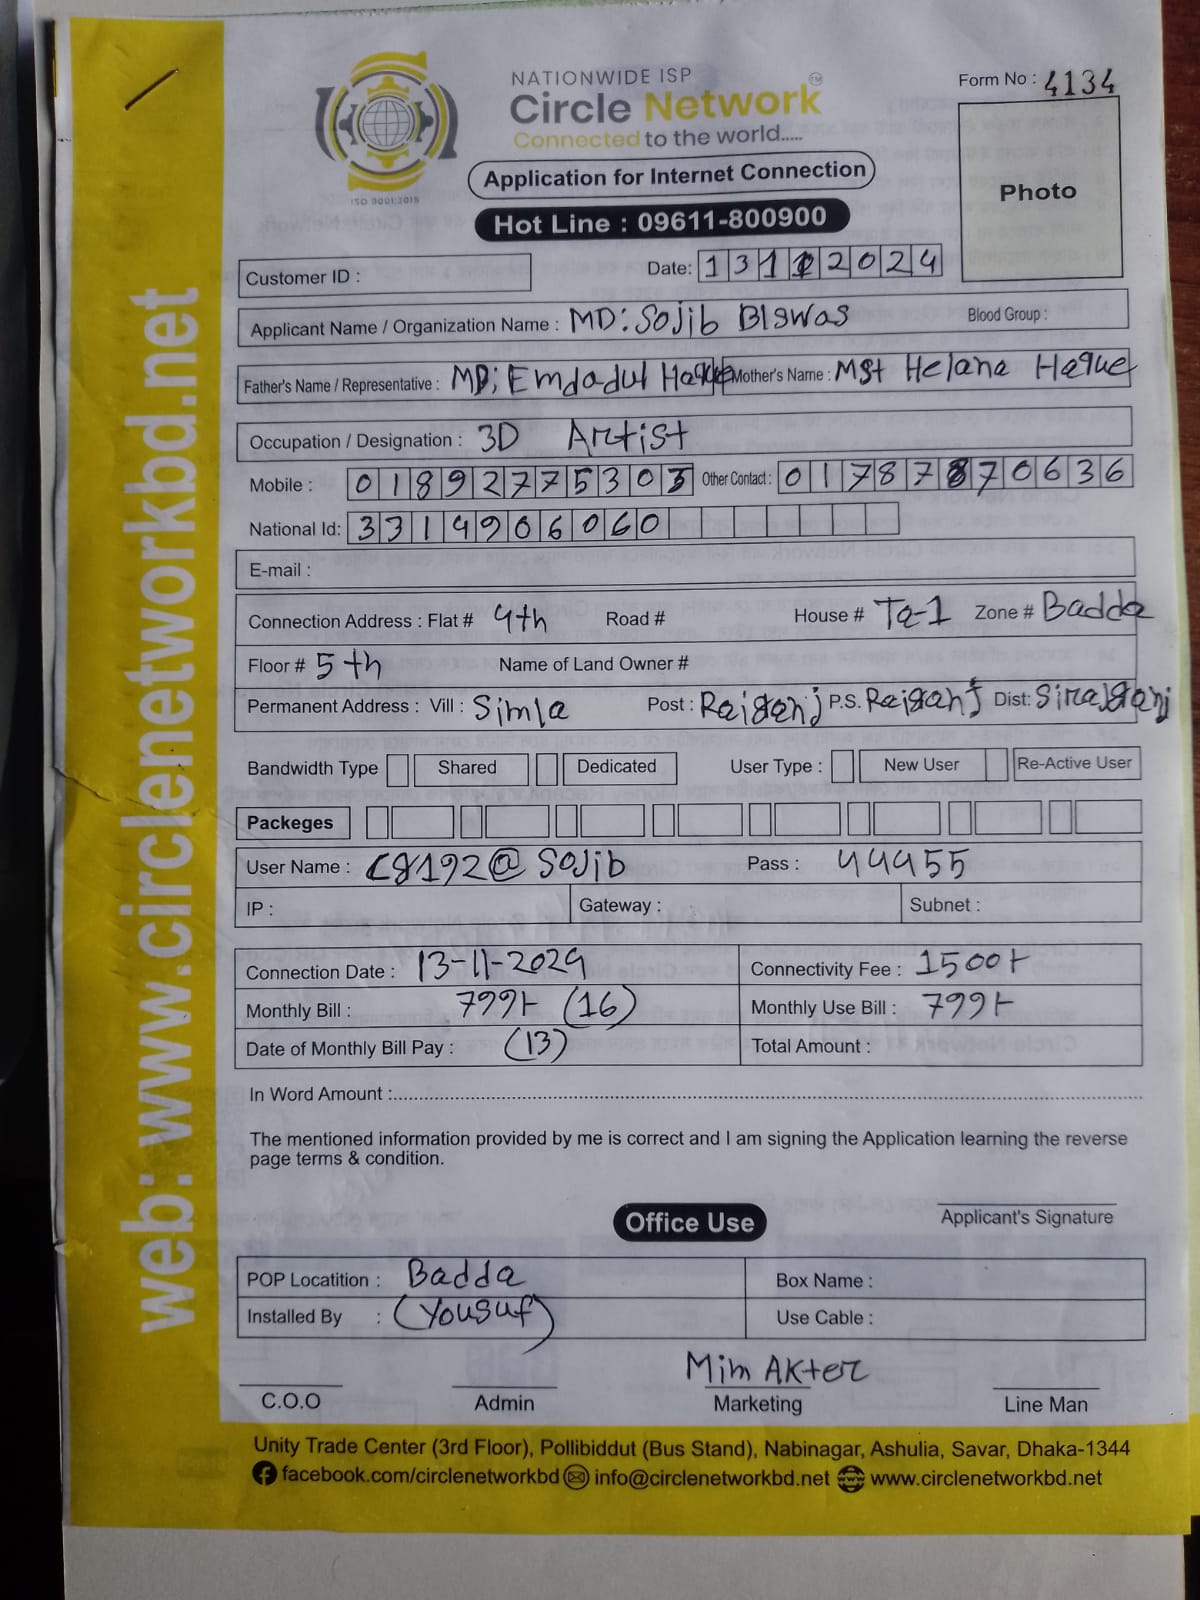 NATIONWIDE ISP
Circle Network TM
Connected to the world.....
ISO 9001:2015
Application for Internet Connection
Hot Line : 09611-800900
Form No : 4134
Photo
Customer ID :
Date: 13112024
Applicant Name / Organization Name : MD: Sojib Biswas Blood Group :
Father's Name / Representative : MD: Emdadul Haque Mother's Name : Mst Helana Haque
Occupation / Designation : 3D Artist
Mobile : 01892775303 Other Contact : 01787870636
National Id: 3314906060
E-mail :
Connection Address : Flat # 4th Road # House # Ta-1 Zone # Badda
Floor # 5th Name of Land Owner #
Permanent Address : Vill : Simla Post : Raiganj P.S. Raiganj Dist: Sirajganj
Bandwidth Type Shared Dedicated User Type : New User Re-Active User
Packeges
User Name : C8192@Sojib Pass : 44455
IP : Gateway : Subnet :
Connection Date : 13-11-2024 Connectivity Fee : 1500/-
Monthly Bill : 799/- (16) Monthly Use Bill : 799/-
Date of Monthly Bill Pay : (13) Total Amount :
In Word Amount :
The mentioned information provided by me is correct and I am signing the Application learning the reverse
page terms & condition.
Applicant's Signature
Office Use
POP Locatition : Badda Box Name :
Installed By : (Yousuf) Use Cable :
Mim Akter
C.O.O Admin Marketing Line Man
Unity Trade Center (3rd Floor), Pollibiddut (Bus Stand), Nabinagar, Ashulia, Savar, Dhaka-1344
facebook.com/circlenetworkbd info@circlenetworkbd.net www.circlenetworkbd.net
web: www.circlenetworkbd.net